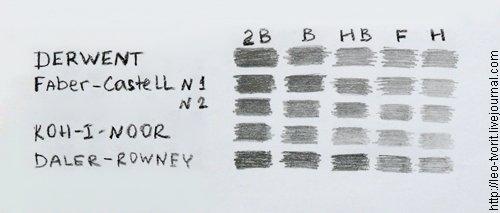 2B B HB F H
DERWENT
FABER-CASTELL N1
N2
KOH-I-NOOR
DALER-ROWNEY
http://leo-tvorit.livejournal.com